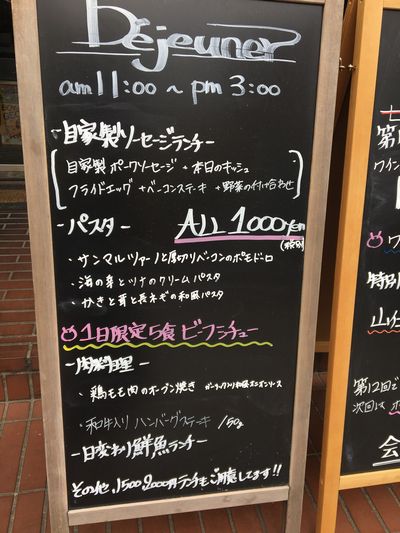 Déjeuner
am 11:00 ~ pm 3:00
- 自家製ソーセージランチ -
自家製 ポークソーセージ + 本日のキッシュ
フライドエッグ + ベーコンステーキ + 野菜の付け合わせ
- パスタ - ALL 1000yen
(税別)
・サンマルツァーノと厚切りベーコンのポモドーロ
・海の幸とツナのクリームパスタ
・かきと茸と長ネギの和風パスタ
1日限定5食 ビーフシチュー
- 肉料理 -
・鶏もも肉のオーブン焼き
・和牛入りハンバーグステーキ 150g
- 日変わり鮮魚ランチ -
その他、1500、2000円ランチもご用意してます!!
第
ワイン
ワ
特別
山
第12回で
次回は
会